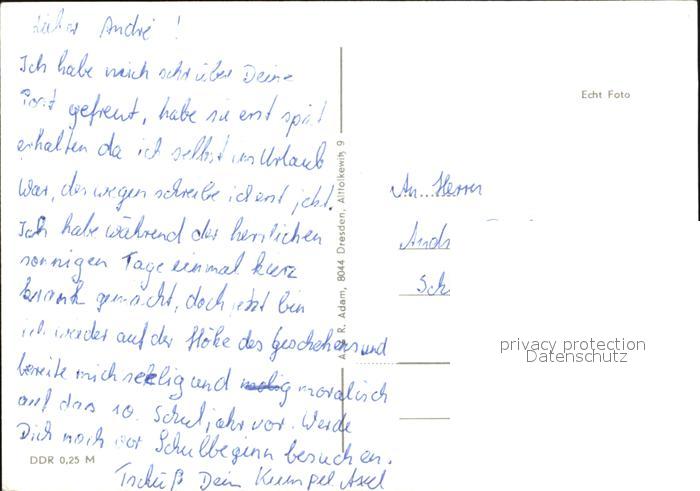 Lieber André!
Ich habe mich sehr über Deine
Post gefreut, habe sie erst spät
erhalten da ich selbst im Urlaub
war, deswegen schreibe ich erst jetzt.
Ich habe während der herrlichen
sonnigen Tage einmal kurz
krank gemacht, doch jetzt bin
ich wieder auf der Höhe des geschehens und
bereite mich seelig und moralisch
auf das 10. Schuljahr vor. Werde
Dich noch vor Schulbeginn besuchen.
Tschüß Dein Kumpel Axel
DDR 0,25 M
R. Adam, 8044 Dresden, Altfolkewitz 9
Echt Foto
An Herrn
And
Sch
privacy protection
Datenschutz